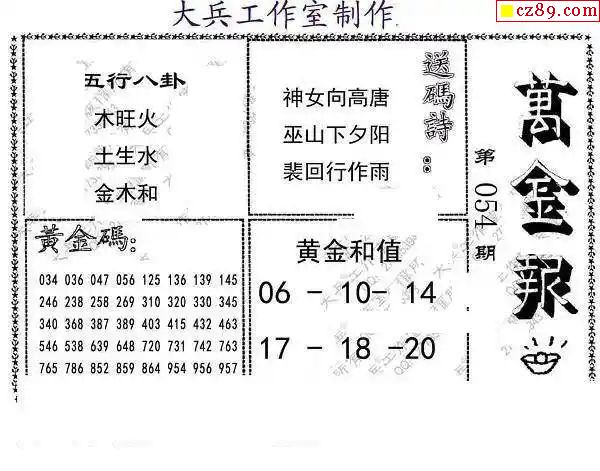 大兵工作室制作
cz89.com
五行八卦
木旺火
土生水
金木和
送碼詩:
神女向高唐
巫山下夕阳
裴回行作雨
萬金報
第054期
黃金碼:
034 036 047 056 125 136 139 145
246 238 258 269 310 320 330 345
340 368 387 389 403 415 432 463
546 538 639 648 720 731 742 763
765 786 852 859 864 954 956 957
黄金和值
06 - 10- 14
17 - 18 -20